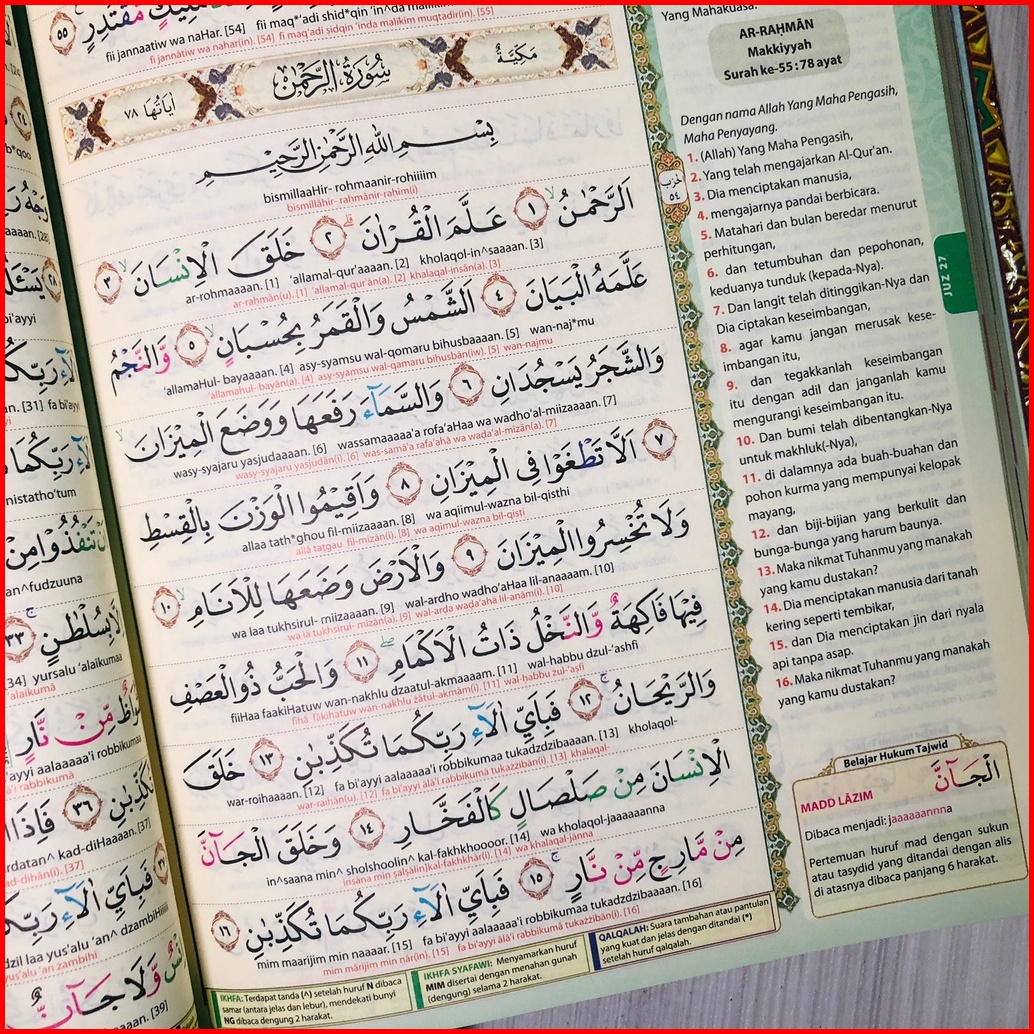 fii jannaatiw wa naHar. [54] fii maq*'adi shid*qin 'in^da maliikim muqtadir(in). [55]
fī jannātiw wa nahar(in). [54] fī maq'adi ṣidqin 'inda malīkim muqtadir(in). [55]
مَكِّيَّةٌ
سُورَةُ الرَّحْمٰنِ
اٰيَاتُهَا ٧٨
بِسْمِ اللّٰهِ الرَّحْمٰنِ الرَّحِيْمِ
bismillaaHir- rohmaanir-rohiiiim
bismillāhir- rahmānir-rahim(i)
اَلرَّحْمٰنُۙ ١ عَلَّمَ الْقُرْاٰنَۗ ٢ خَلَقَ الْاِنْسَانَۙ ٣
ar-rohmaaaan. [1] 'allamal-qur'aaaan. [2] kholaqol-in^saaaan. [3]
ar-raḥmān(u). [1] 'allamal-qur'ān(a). [2] khalaqal-insān(a). [3]
عَلَّمَهُ الْبَيَانَ ٤ اَلشَّمْسُ وَالْقَمَرُ بِحُسْبَانٍۙ ٥ وَّالنَّجْمُ
'allamaHul- bayaaaan. [4] asy-syamsu wal-qomaru bihusbaaaan. [5] wan-naj*mu
'allamahul- bayān(a). [4] asy-syamsu wal-qamaru bihusbān(iw). [5] wan-najmu
وَالشَّجَرُ يَسْجُدَانِ ٦ وَالسَّمَاۤءَ رَفَعَهَا وَوَضَعَ الْمِيْزَانَۙ
wasy-syajaru yasjudaaaan. [6] wassamaaaaa'a rofa'aHaa wa wadho'al-miizaaaan. [7]
wasy-syajaru yasjudān(i). [6] was-samā'a rafa'ahā wa waḍa'al-mīzān(a). [7]
٧ اَلَّا تَطْغَوْا فِى الْمِيْزَانِ ٨ وَاَقِيْمُوا الْوَزْنَ بِالْقِسْطِ
allaa tath*ghou fil-miizaaaan. [8] wa aqiimul-wazna bil-qisthi
allā taṭgau fil-mīzān(i). [8] wa aqīmul-wazna bil-qisṭi
وَلَا تُخْسِرُوا الْمِيْزَانَ ٩ وَالْاَرْضَ وَضَعَهَا لِلْاَنَامِۙ ١٠
wa laa tukhsirul- miizaaaan. [9] wal-ardho wadho'aHaa lil-anaaaam. [10]
wa lā tukhsirul- mīzān(a). [9] wal-arḍa waḍa'ahā lil-anām(i). [10]
فِيْهَا فَاكِهَةٌ وَّالنَّخْلُ ذَاتُ الْاَكْمَامِۖ ١١ وَالْحَبُّ ذُو الْعَصْفِ
fiiHaa faakiHatuw wan-nakhlu dzaatul-akmaaaam. [11] wal-habbu dzul-'ashfi
fīhā fākihatuw wan-nakhlu żātul-akmām(i). [11] wal-ḥabbu żul-'aṣfi
وَالرَّيْحَانُۚ ١٢ فَبِاَيِّ اٰلَاۤءِ رَبِّكُمَا تُكَذِّبٰنِ ١٣ خَلَقَ
war-roihaaaan. [12] fa bi'ayyi aalaaaaa'i robbikumaa tukadzdzibaaaan. [13] kholaqol-
war-raiḥān(u). [12] fa bi'ayyi ālā'i rabbikumā tukażżibān(i). [13] khalaqal-
الْاِنْسَانَ مِنْ صَلْصَالٍ كَالْفَخَّارِ ١٤ وَخَلَقَ الْجَاۤنَّ
in^saana min^ sholshoolin^ kal-fakhkhoooor. [14] wa kholaqol-jaaaaaanna
insāna min ṣalṣālin) kal-fakhkhār(i). [14] wa khalaqal-jānna
مِنْ مَّارِجٍ مِّنْ نَّارٍۚ ١٥ فَبِاَيِّ اٰلَاۤءِ رَبِّكُمَا تُكَذِّبٰنِ ١٦
mim maarijim min naaaar. [15] fa bi'ayyi aalaaaaa'i robbikumaa tukadzdzibaaaan. [16]
mim mārijim min nār(in). [15] fa bi'ayyi ālā'i rabbikumā tukażżibān(i). [16]
IKHFA: Terdapat tanda (^) setelah huruf N dibaca
samar (antara jelas dan lebur), mendekati bunyi
NG dibaca dengung 2 harakat.
IKHFA SYAFAWI: Menyamarkan huruf
MIM disertai dengan menahan gunah
(dengung) selama 2 harakat.
QALQALAH: Suara tambahan atau pantulan
yang kuat dan jelas dengan ditandai (*)
setelah huruf qalqalah.
حزب
٥٤
Yang Mahakuasa.
AR-RAḤMĀN
Makkiyyah
Surah ke-55 : 78 ayat
Dengan nama Allah Yang Maha Pengasih,
Maha Penyayang.
1. (Allah) Yang Maha Pengasih,
2. Yang telah mengajarkan Al-Qur'an.
3. Dia menciptakan manusia,
4. mengajarnya pandai berbicara.
5. Matahari dan bulan beredar menurut
perhitungan,
6. dan tetumbuhan dan pepohonan,
keduanya tunduk (kepada-Nya).
7. Dan langit telah ditinggikan-Nya dan
Dia ciptakan keseimbangan,
8. agar kamu jangan merusak kese-
imbangan itu,
9. dan tegakkanlah keseimbangan
itu dengan adil dan janganlah kamu
mengurangi keseimbangan itu.
10. Dan bumi telah dibentangkan-Nya
untuk makhluk(-Nya),
11. di dalamnya ada buah-buahan dan
pohon kurma yang mempunyai kelopak
mayang,
12. dan biji-bijian yang berkulit dan
bunga-bunga yang harum baunya.
13. Maka nikmat Tuhanmu yang manakah
yang kamu dustakan?
14. Dia menciptakan manusia dari tanah
kering seperti tembikar,
15. dan Dia menciptakan jin dari nyala
api tanpa asap.
16. Maka nikmat Tuhanmu yang manakah
yang kamu dustakan?
JUZ 27
Belajar Hukum Tajwid
MADD LĀZIM
الْجَاۤنَّ
Dibaca menjadi: jaaaaaannna
Pertemuan huruf mad dengan sukun
atau tasydid yang ditandai dengan alis
di atasnya dibaca panjang 6 harakat.